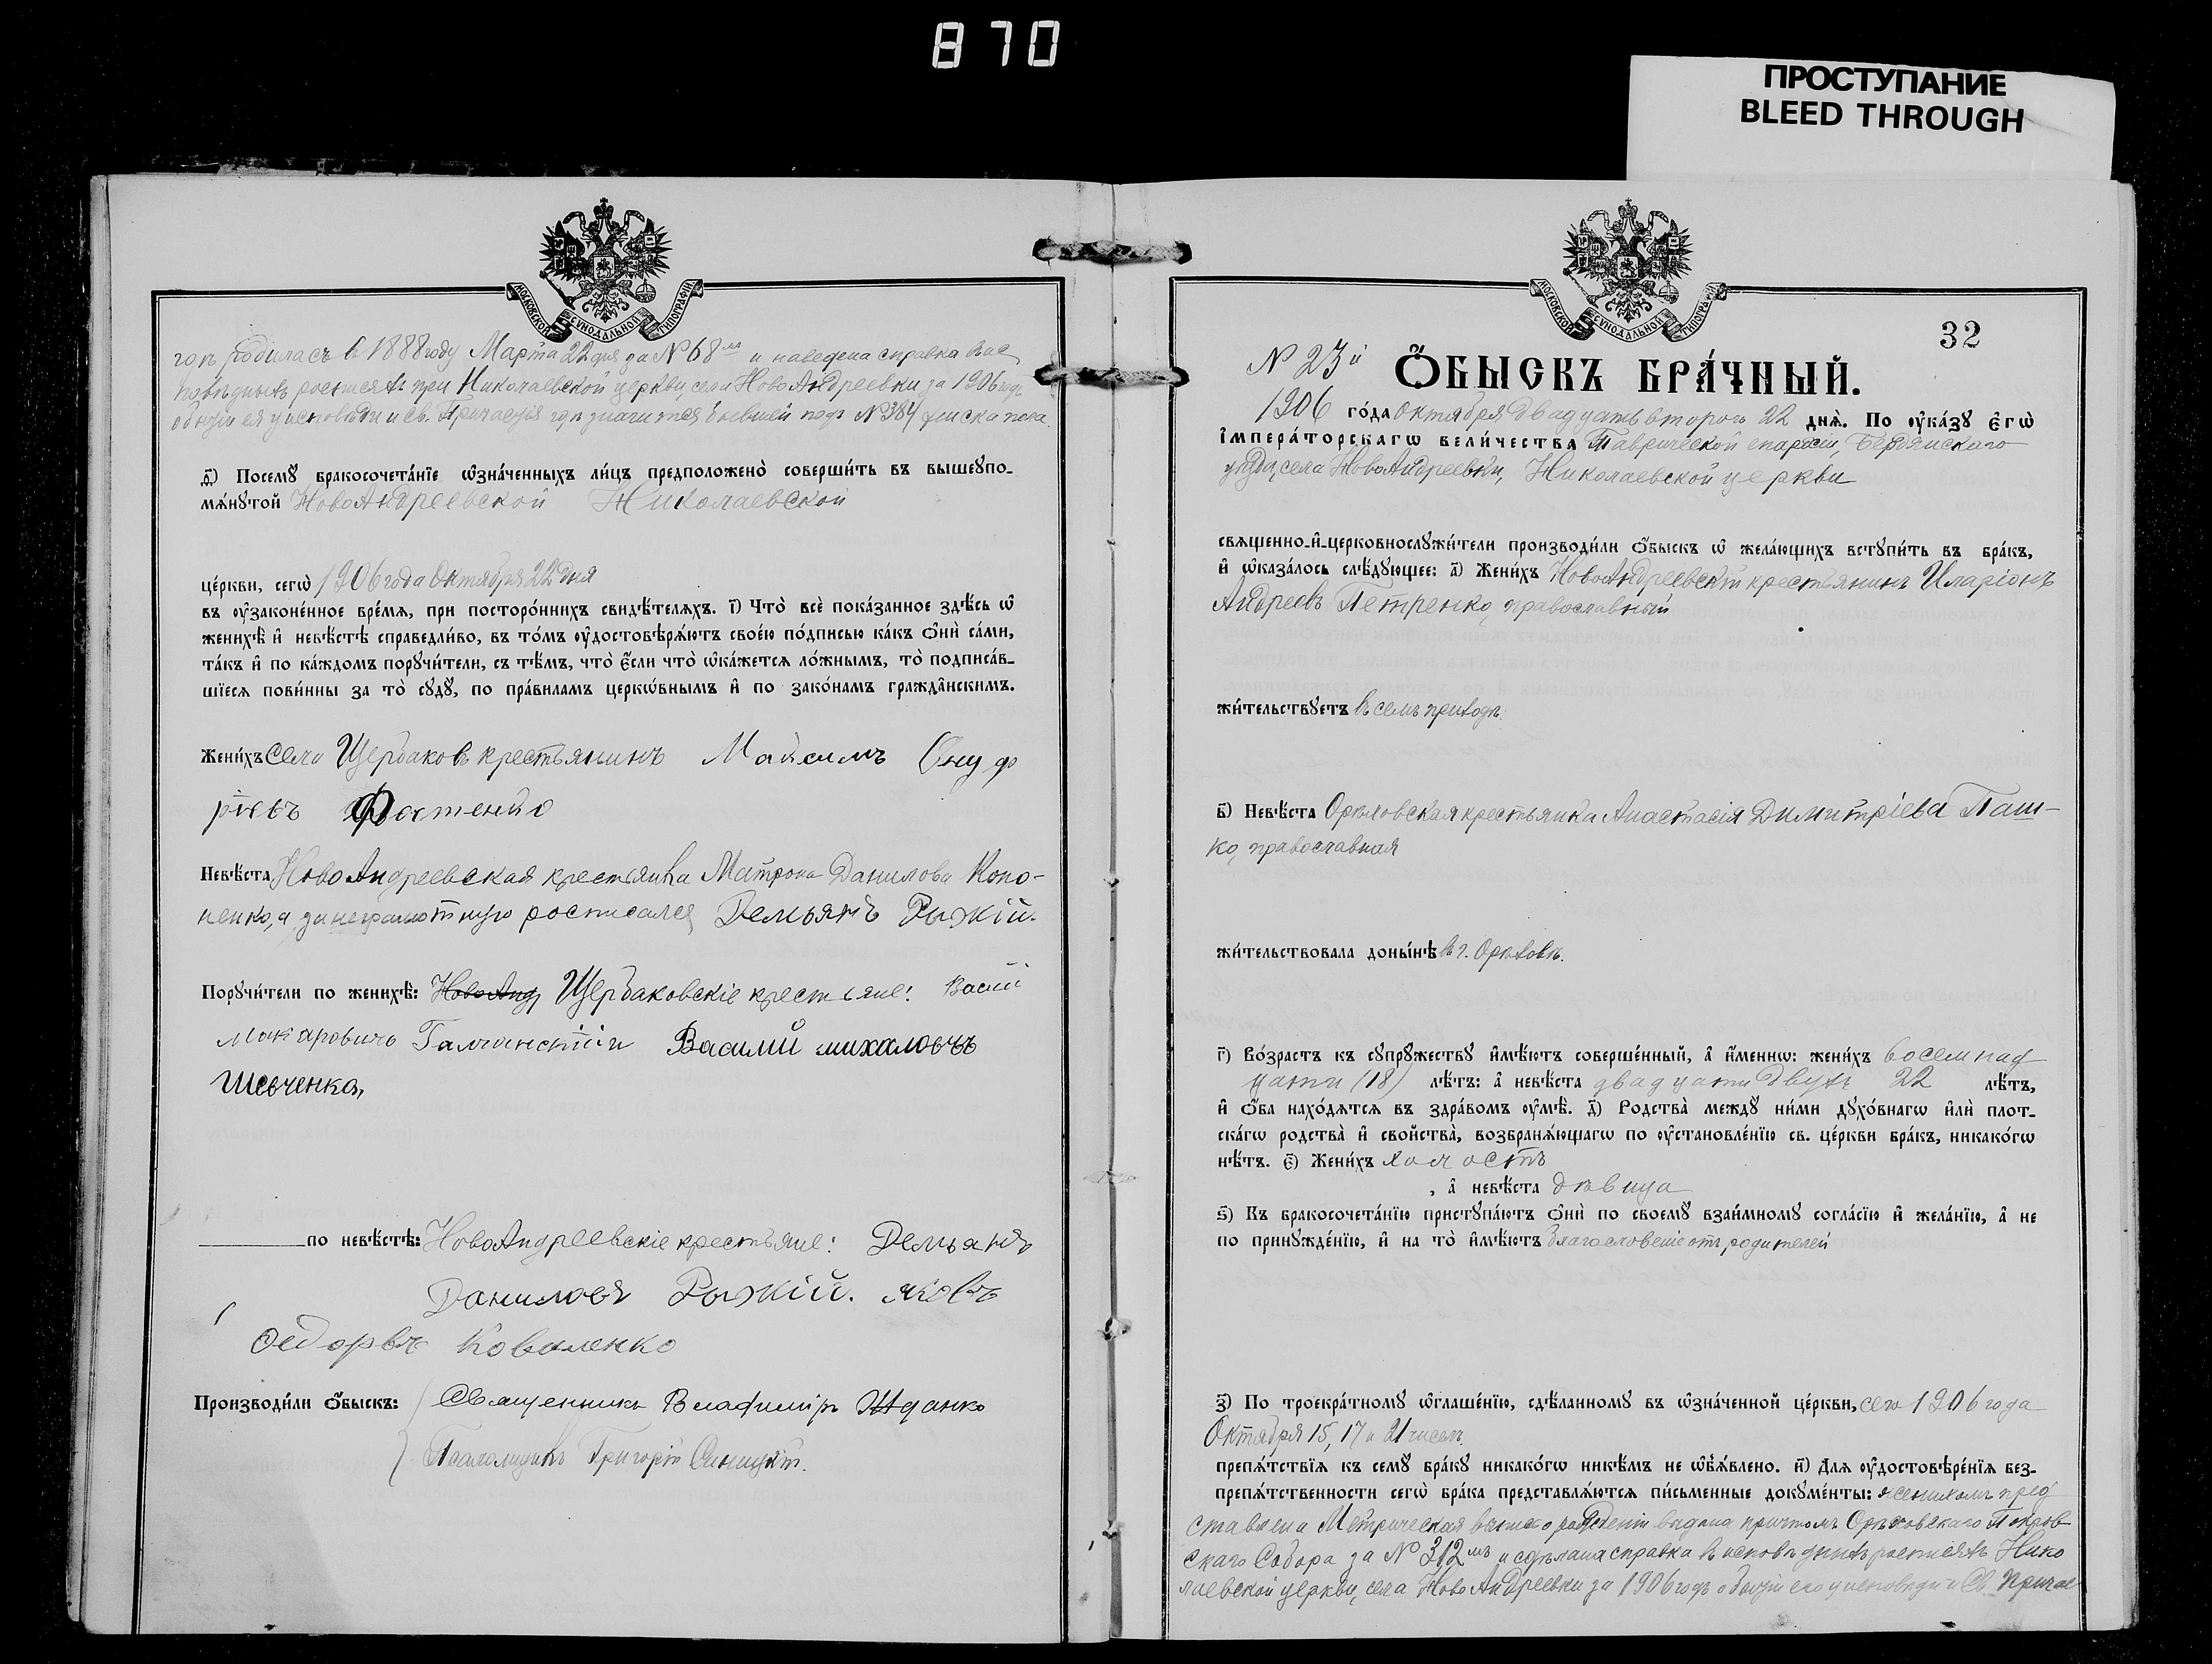 870
ПРОСТУПАНИЕ
BLEED THROUGH
МОСКОВСКОЙ СѴНОДАЛЬНОЙ ТИПОГРАФІИ
гдѣ родилась въ 1888 году Марта 22 дня за № 68 и наведена справка въ ис
повѣдныхъ росписяхъ при Николаевской церкви, села НовоАндреевки за 1906 годъ
о бытіи ея у исповѣди и св. Причастія гдѣ значится бывшей подъ № 384
д҃) Посемꙋ̀ бракосочета́нїе ѡ҆зна́ченныхъ ли́цъ предположено̀ соверши́ть въ вышеꙋпо-
мѧ́нꙋтой НовоАндреевской Николаевской
це́ркви, сегѡ̀ 1906 года Октября 22 дня
въ ᲂу҆законе́нное вре́мѧ, при посторо́ннихъ свидѣ́телѧхъ. і҃) Что̀ всѐ пока́занное здѣ́сь ѡ҆
женихѣ̀ и҆ невѣ́стѣ справедли́во, въ то́мъ ᲂу҆достовѣрѧ́ютъ свое́ю по́дписью ка́къ ѻ҆нѝ са́ми,
та́къ и҆ по ка́ждомъ порꙋчи́тели, съ тѣ́мъ, что̀ є҆́сли что̀ ѡ҆ка́жетсѧ ло́жнымъ, то̀ подписа́в-
шїесѧ пови́нны за то̀ сꙋдꙋ̀, по пра́виламъ церко́внымъ и҆ по зако́намъ гражда́нскимъ.
Жени́хъ села Щербаковъ крестьянинъ Максимъ Онуф
ріевъ Фотенко
Невѣ́ста НовоАндреевская крестьянка Матрона Данилова Коно-
ненко, а за неграмотную росписался Демьянъ Рыжій.
Порꙋчи́тели по женихѣ̀: НовоАнд Щербаковскіе крестьяне: Васил
Макаровичъ Василий михаловчъ
Шевченка,
по невѣ́стѣ: НовоАндреевскіе крестьяне: Демьянъ
Даниловъ Рыжій. яковъ
Федорвъ Коваленко
Производи́ли ѻ҆́быскъ: Священникъ Владиміръ Жданко
Псаломщикъ Григорій Синицкій.
МОСКОВСКОЙ СѴНОДАЛЬНОЙ ТИПОГРАФІИ
32
№ 23й
Ѻ҆́БЫСКЪ БРА́ЧНЫЙ.
1906 го́да Октября двадцать второго 22 днѧ̀. По ᲂу҆ка́зꙋ Є҆гѡ̀
І҆мпера́торскагѡ вели́чества Таврической епархіи, Бердянскаго
уѣзда, села НовоАндреевки, Николаевской церкви
свѧщенно-и҆-церковнослꙋжи́тели производи́ли ѻ҆́быскъ ѡ҆ жела́ющихъ встꙋпи́ть въ бра́къ,
и҆ ѡ҆каза́лось слѣ́дꙋющее: а҃) Жени́хъ НовоАндреевскій крестьянинъ Иларіонъ
Андреевъ Петренко, православный
жи́тельствꙋетъ въ семъ приходѣ.
в҃) Невѣ́ста Орѣховская крестьянка Анастасія Димитріева Паш-
ко, православная
жи́тельствовала доны́нѣ въ г. Орѣховѣ.
г҃) Во́зрастъ къ сꙋпрꙋ́жествꙋ и҆мѣ́ютъ соверше́нный, а҆ и҆́меннѡ: жени́хъ восемнад
цати (18) лѣ́тъ: а҆ невѣ́ста двадцати двухъ 22 лѣ́тъ,
и҆ ѻ҆́ба нахо́дѧтсѧ въ здра́вомъ ᲂу҆мѣ̀. д҃) Родства̀ междꙋ̀ ни́ми дꙋхо́внагѡ и҆лѝ плот-
ска́гѡ родства̀ и҆ сво́йства̀, возбранѧ́ющагѡ по ᲂу҆становле́нїю св. це́ркви бра́къ, никако́гѡ
нѣ́тъ. є҃) Жени́хъ холостъ
, а҆ невѣ́ста дѣвица
ѕ҃) Къ бракосочета́нїю пристꙋпа́ютъ ѻ҆нѝ по своемꙋ̀ взаи́мномꙋ согла́сїю и҆ жела́нїю, а҆ не
по принꙋжде́нїю, и҆ на то̀ и҆мѣ́ютъ благословеніе отъ родителей
з҃) По троекра́тномꙋ ѡ҆глаше́нїю, сдѣ́ланномꙋ въ ѡ҆зна́ченной це́ркви, сего 1906 года
Октября 15, 17 и 21 чиселъ.
препѧ́тствїѧ къ семꙋ̀ бра́кꙋ никако́гѡ никѣ́мъ не ѡ҆б̾ѧ́влено. и҃) Длѧ ᲂу҆достовѣре́нїѧ без-
препѧ́тственности сегѡ̀ бра́ка представлѧ́ютсѧ пи́сьменные докꙋме́нты: женихомъ пред
ставлена Метрическая выпись о рожденіи выдана причтомъ Орѣховскаго Покров
скаго Собора за № 312 и сдѣлана справка въ исповѣдныхъ росписяхъ Нико
лаевской церкви, села НовоАндреевки за 1906 годъ о бытіи его у исповѣди и Св. Причас